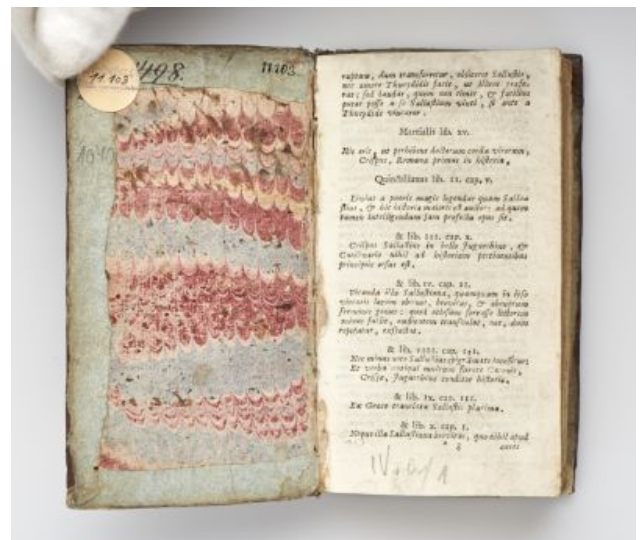 11103
498.
11103
1040
ruptum, dum transferetur, obfuerit Sallustio,
nec amore Thucydidis facit, ut illum præfe-
rat; sed laudat, quem non timet, & facilius
putat posse a se Sallustium vinci, si ante a
Thucydide vincatur.
Martialis lib. XV.
Hic erit, ut perhibent doctorum corda virorum,
Crispus, Romana primus in historia.
Quinctilianus lib. II. cap. V.
Livius a pueris magis legendus quam Sallu-
stius, & hic historiæ majoris est auctor: ad quem
tamen intelligendum jam profectu opus sit.
& lib. III. cap. X.
Crispus Sallustius in bello Jugurthino, &
Catilinario nihil ad historiam pertinentibus
principiis orsus est.
& lib. IV. cap. II.
Vitanda illa Sallustiana, quamquam in ipso
virtutis locum obtinet, brevitas, & abruptum
sermonis genus: quod otiosum fortasse lectorem
minus fallit, audientem transvolat, nec, dum
repetatur, exspectat.
& lib. VIII. cap. III.
Nec minus noto Sallustius epigrammate incessitur:
Et verba antiqui multum furate Catonis,
Crispe, Jugurthinæ conditor historiæ.
& lib. IX. cap. III.
Ex Græco translata Sallustii plurima.
& lib. X. cap. I.
Neque illa Sallustiana brevitas, qua nihil apud